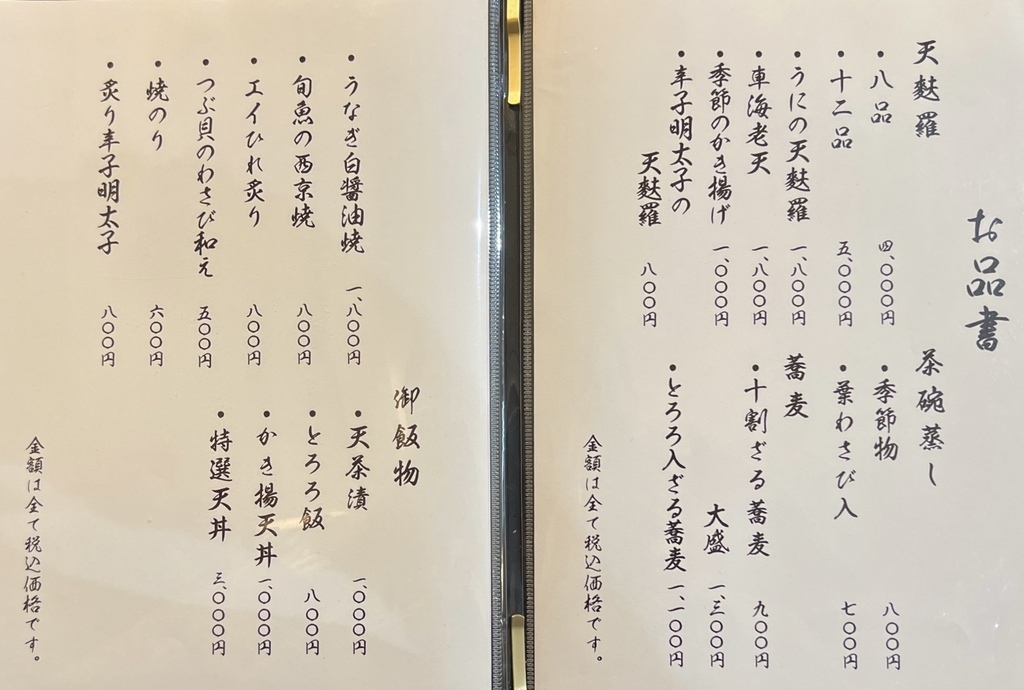 お品書
天麩羅
・八品 四、〇〇〇円
・十二品 五、〇〇〇円
・うにの天麩羅 一、八〇〇円
・車海老天 一、八〇〇円
・季節のかき揚げ 一、〇〇〇円
・辛子明太子の
天麩羅 八〇〇円
茶碗蒸し
・季節物 八〇〇円
・葉わさび入 七〇〇円
蕎麦
・十割ざる蕎麦 九〇〇円
大盛 一、三〇〇円
・とろろ入ざる蕎麦 一、一〇〇円
金額は全て税込価格です。
・うなぎ白醤油焼 一、八〇〇円
・旬魚の西京焼 八〇〇円
・エイひれ炙り 八〇〇円
・つぶ貝のわさび和え 五〇〇円
・焼のり 六〇〇円
・炙り辛子明太子 八〇〇円
御飯物
・天茶漬 一、〇〇〇円
・とろろ飯 八〇〇円
・かき揚天丼 一、〇〇〇円
・特選天丼 三、〇〇〇円
金額は全て税込価格です。